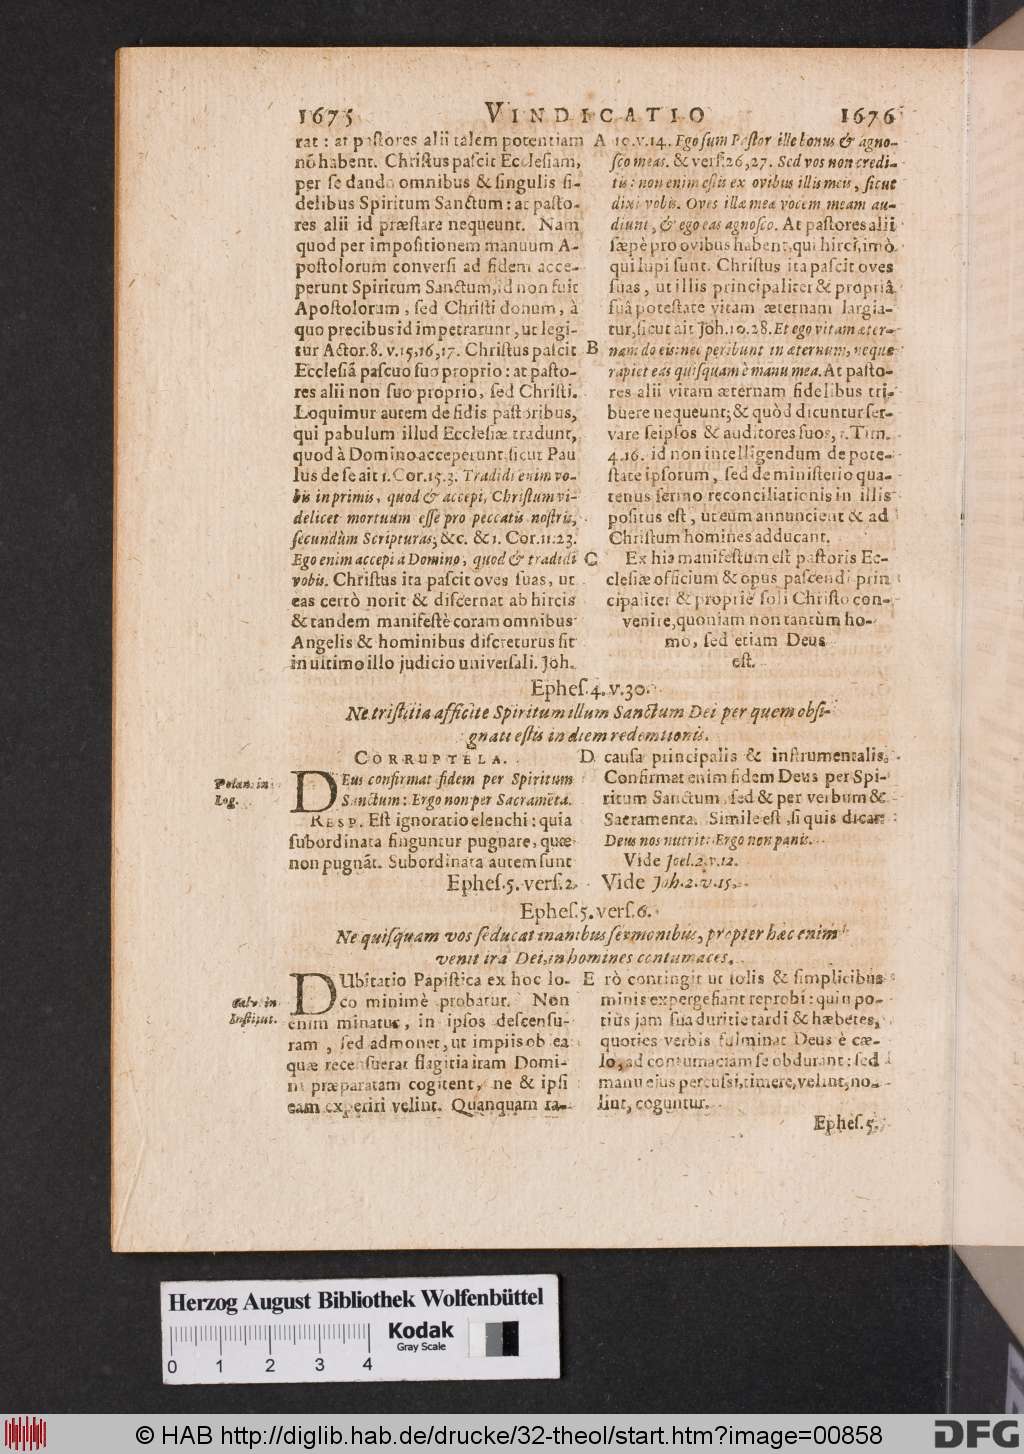 1675 VINDICATIO 1676
rat: at pastores alii talem potentiam
nō habent. Christus pascit Ecclesiam,
per se dando omnibus & singulis fi-
delibus Spiritum Sanctum: at pasto-
res alii id præstare nequeunt. Nam
quod per impositionem manuum A-
postolorum conversi ad fidem acce-
perunt Spiritum Sanctum, id non fuit
Apostolorum, sed Christi donum, à
quo precibus id impetrarunt, ut legi-
tur Actor. 8. v. 15, 16, 17. Christus pascit
Ecclesiā pascuo suo proprio: at pasto-
res alii non suo proprio, sed Christi.
Loquimur autem de fidis pastoribus,
qui pabulum illud Ecclesiæ tradunt,
quod à Domino acceperunt, sicut Pau
lus de se ait 1. Cor. 15. 3. Tradidi enim vo-
bis inprimis, quod & accepi, Christum vi-
delicet mortuum esse pro peccatis nostris,
secundùm Scripturas; &c. & 1. Cor. 11. 23.
Ego enim accepi a Domino, quod & tradidi
vobis. Christus ita pascit oves suas, ut
eas certò norit & discernat ab hircis
& tandem manifestè coram omnibus
Angelis & hominibus discreturus sit
in ultimo illo judicio universali. Joh.
A 10. v. 14. Ego sum Pastor ille bonus & agno-
sco meas. & vers. 26, 27. Sed vos non credi-
tis: non enim estis ex ovibus illis meis, sicut
dixi vobis. Oves illæ meæ vocem meam au-
diunt, & ego eas agnosco. At pastores alii
sæpè pro ovibus habent, qui hirci, imò
qui lupi sunt. Christus ita pascit oves
suas, ut illis principaliter & propriâ
suâ potestate vitam æternam largia-
tur, sicut ait Joh. 10. 28. Et ego vitam æter-
B nam do eis: nec peribunt in æternum, neque
rapiet eas quisquam è manu mea. At pasto-
res alii vitam æternam fidelibus tri-
buere nequeunt; & quòd dicuntur ser-
vare seipsos & auditores suos, 1. Tim.
4. 16. id non intelligendum de pote-
state ipsorum, sed de ministerio qua-
tenus sermo reconciliationis in illis
positus est, ut eum annuncient & ad
Christum homines adducant.
C Ex his manifestum est pastoris Ec-
clesiæ officium & opus pascendi prin
cipaliter & propriè soli Christo con-
venire, quoniam non tantùm ho-
mo, sed etiam Deus
est.
Ephes. 4. v. 30.
Ne tristitia afficite Spiritum illum Sanctum Dei per quem obsi-
gnati estis in diem redemtionis.
CORRUPTELA.
Polan. in
Log.
DEus confirmat fidem per Spiritum
Sanctum: Ergo non per Sacramēta.
RESP. Est ignoratio elenchi: quia
subordinata finguntur pugnare, quæ
non pugnāt. Subordinata autem sunt
D causa principalis & instrumentalis.
Confirmat enim fidem Deus per Spi-
ritum Sanctum, sed & per verbum &
Sacramenta. Simile est, si quis dicat:
Deus nos nutrit: Ergo non panis.
Vide Joel. 2. v. 12.
Ephes. 5. vers. 2. Vide Joh. 2. v. 15.
Ephes. 5. vers. 6.
Ne quisquam vos seducat inanibus sermonibus, propter hæc enim
venit ira Dei, in homines contumaces.
Calv. in
Institut.
DUbitatio Papistica ex hoc lo-
co minimè probatur. Non
enim minatur, in ipsos descensu-
ram, sed admonet, ut impiis ob ea
quæ recensuerat flagitia iram Domi-
ni præparatam cogitent, ne & ipsi
eam experiri velint. Quanquam ra-
E rò contingit ut tolis & simplicibus
minis expergefiant reprobi: quin po-
tiùs jam sua duritie tardi & hæbetes,
quoties verbis fulminat Deus è cæ-
lo, ad contumaciam se obdurant: sed
manu ejus percussi, timere, velint, no-
lint, coguntur.
Ephes. 5.
Herzog August Bibliothek Wolfenbüttel
0 1 2 3 4
Kodak
Gray Scale
© HAB http://diglib.hab.de/drucke/32-theol/start.htm?image=00858
DFG